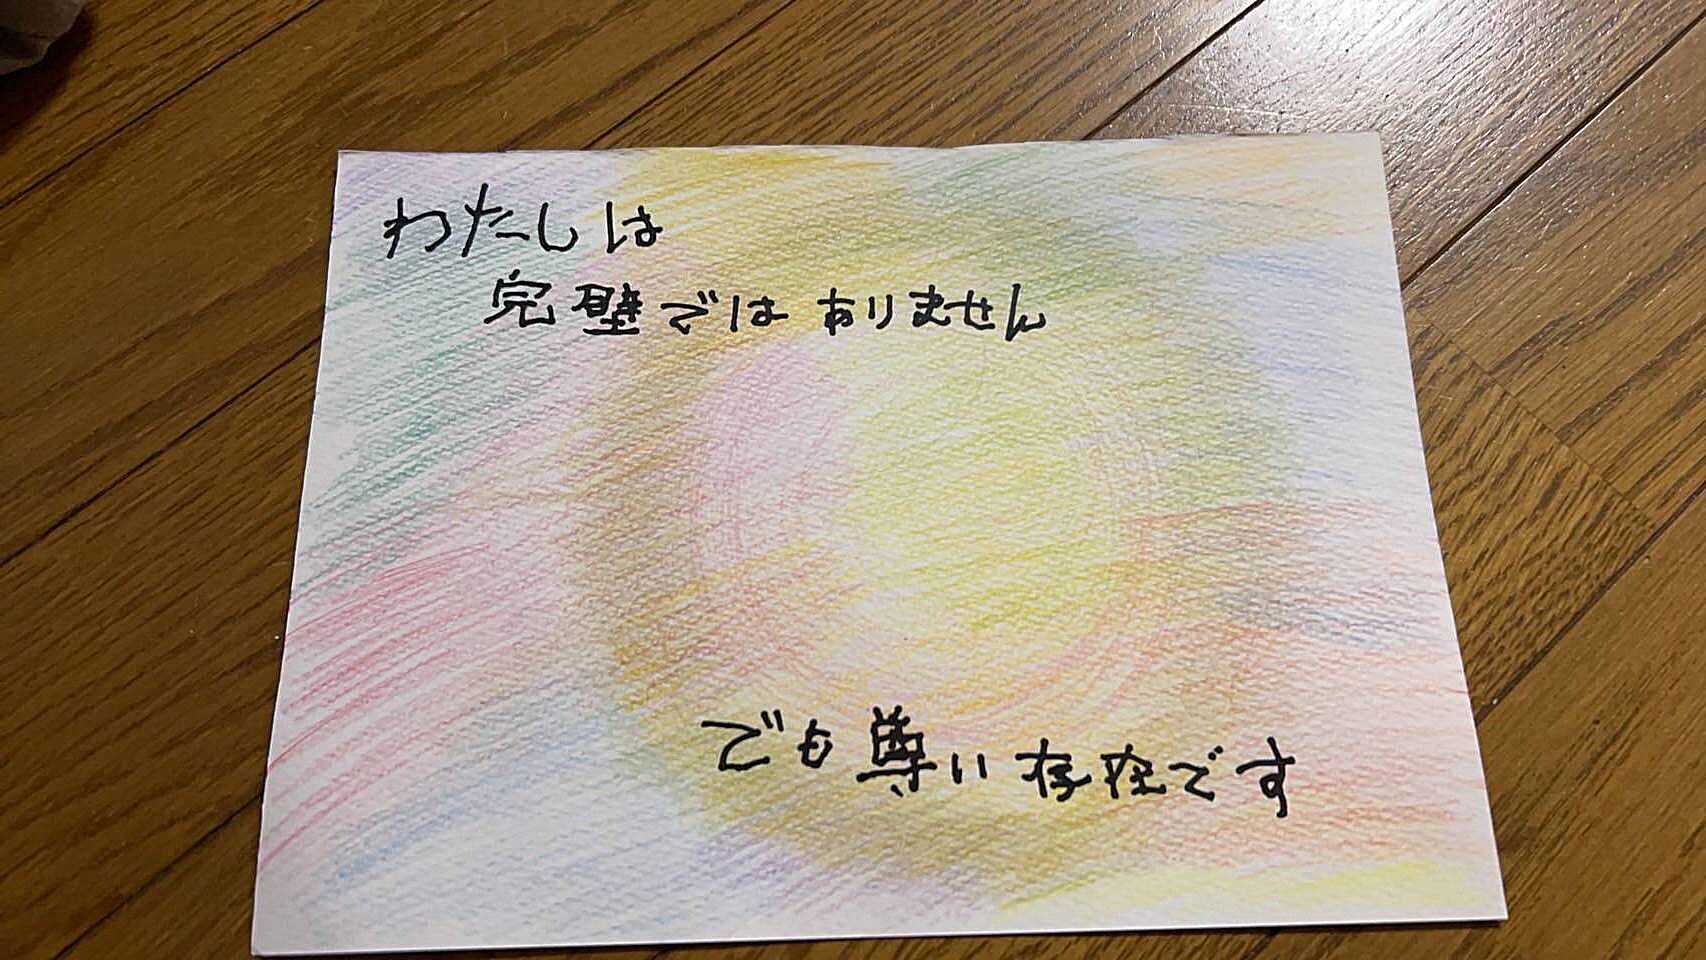 わたしは
完璧ではありません
でも尊い存在です